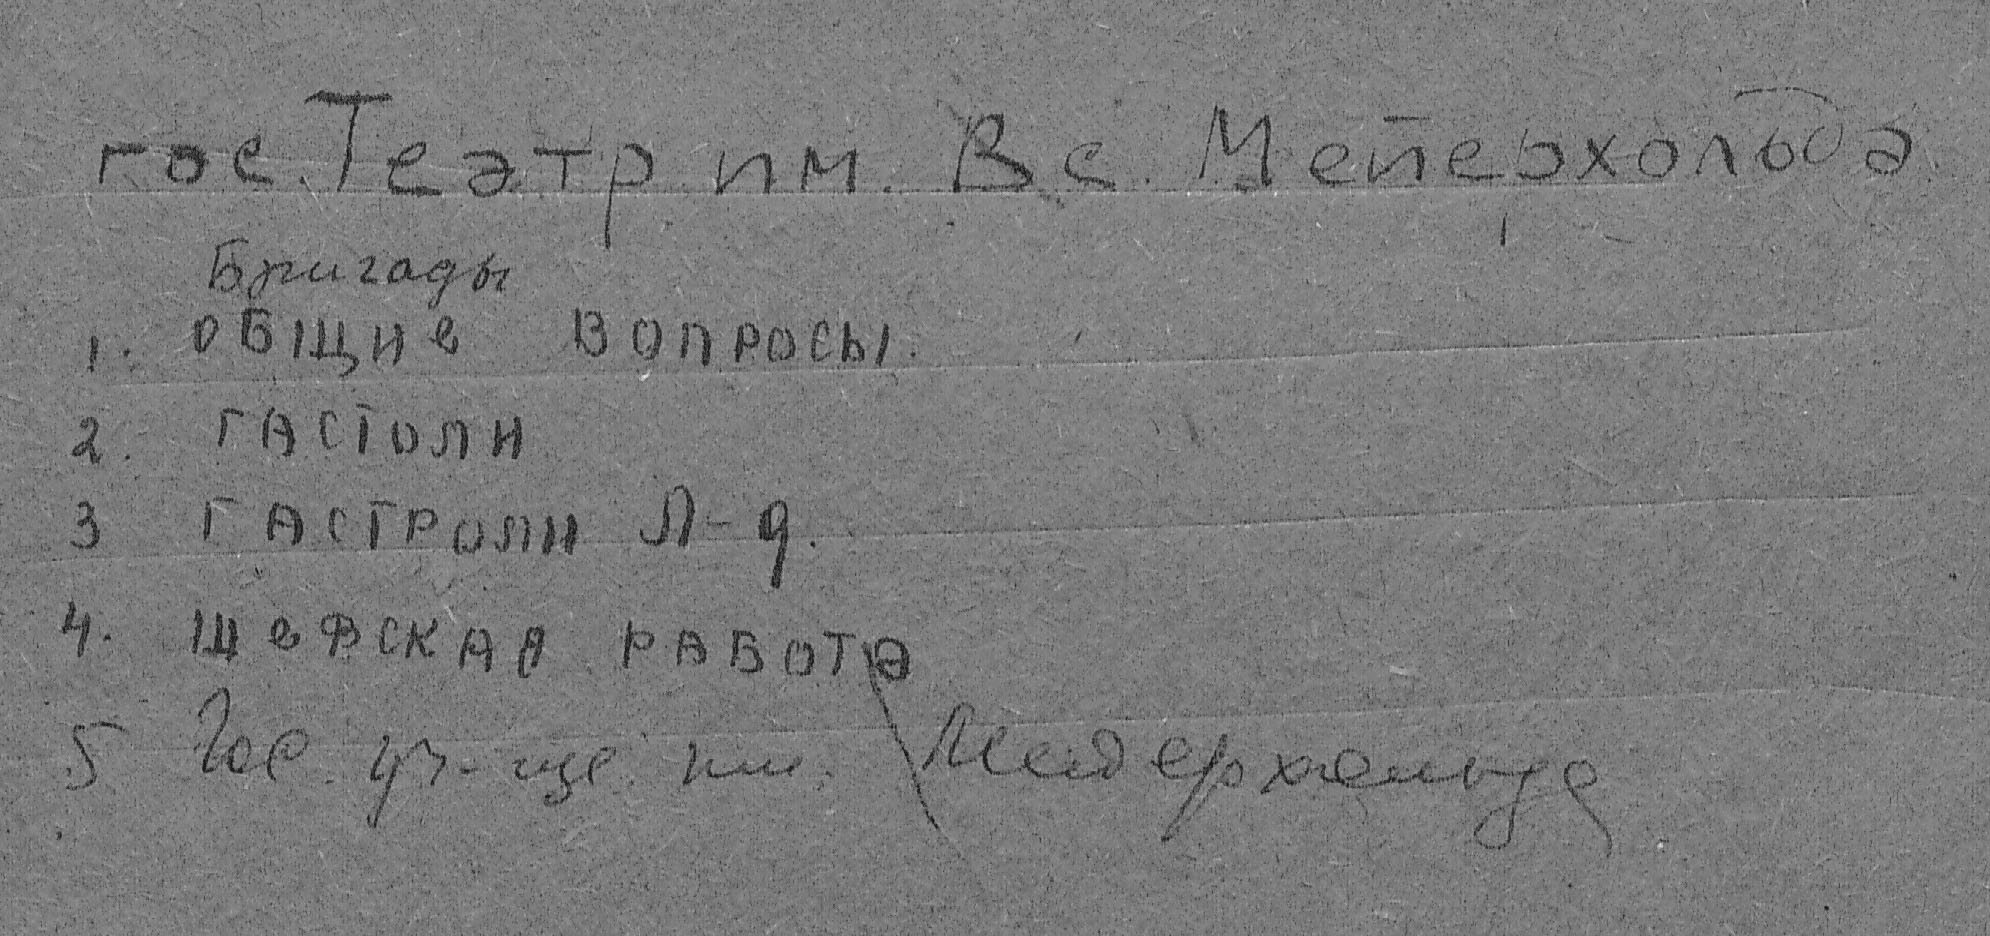 гос. Театр им. Вс. Мейерхольда
Бригады
1. ОБЩИе ВОПРОСЫ.
2. ГАСТОЛИ
3 ГАСТРОЛИ Л-д.
4. ШеФСКАЯ РАБОТа
5 Гос. уч-ще им. Мейерхольда